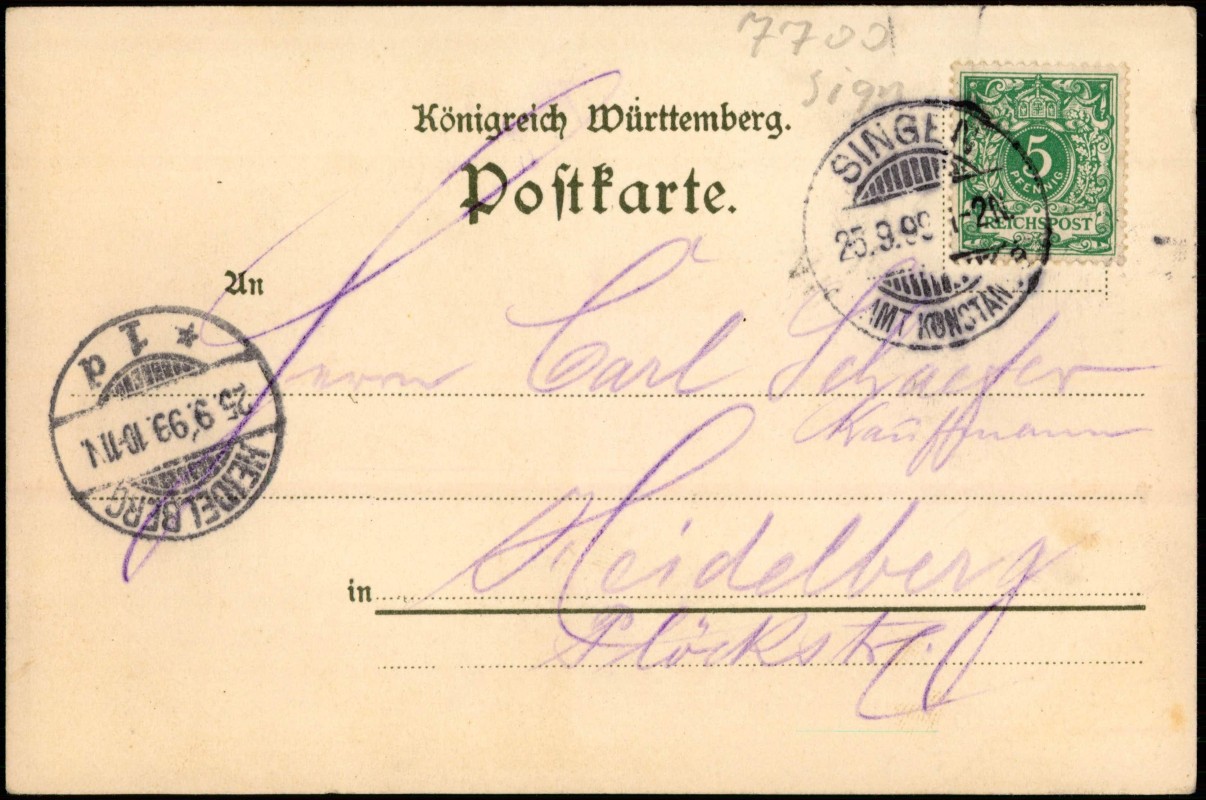 7700
sign
Königreich Württemberg.
Postkarte.
5
PFENNIG
REICHSPOST
SINGEN
25.9.99
AMT KONSTANZ
An
Herrn Carl Schaefer
Kauffmann
in Heidelberg
Plöckstr.
* 1 d
25.9.99.10-11V.
HEIDELBERG